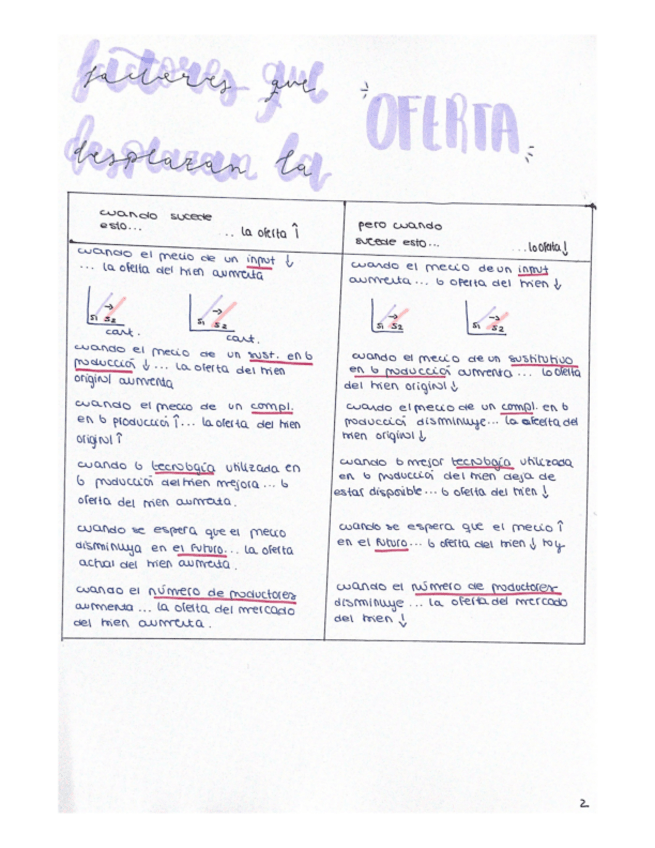 factores que
desplazan la
OFERTA
cuando sucede
esto...
... la oferta ↑
pero cuando
sucede esto...
... la oferta ↓
cuando el precio de un input ↓
... la oferta del bien aumenta
S1 S2
cant.
S1 S2
cant.
cuando el precio de un sust. en la
producción ↓ ... la oferta del bien
original aumenta
cuando el precio de un compl.
en la producción ↑... la oferta del bien
original ↑
cuando la tecnología utilizada en
la producción del bien mejora... la
oferta del bien aumenta.
cuando se espera que el precio
disminuya en el futuro... la oferta
actual del bien aumenta.
cuando el número de productores
aumenta ... la oferta del mercado
del bien aumenta.
cuando el precio de un input
aumenta... la oferta del bien ↓
S1 S2
S1 S2
cuando el precio de un sustitutivo
en la producción aumenta... la oferta
del bien original ↓
cuando el precio de un compl. en la
producción disminuye... la oferta del
bien original ↓
cuando la mejor tecnología utilizada
en la producción del bien deja de
estar disponible... la oferta del bien ↓
cuando se espera que el precio ↑
en el futuro... la oferta del bien ↓ hoy
cuando el número de productores
disminuye ... la oferta del mercado
del bien ↓
2